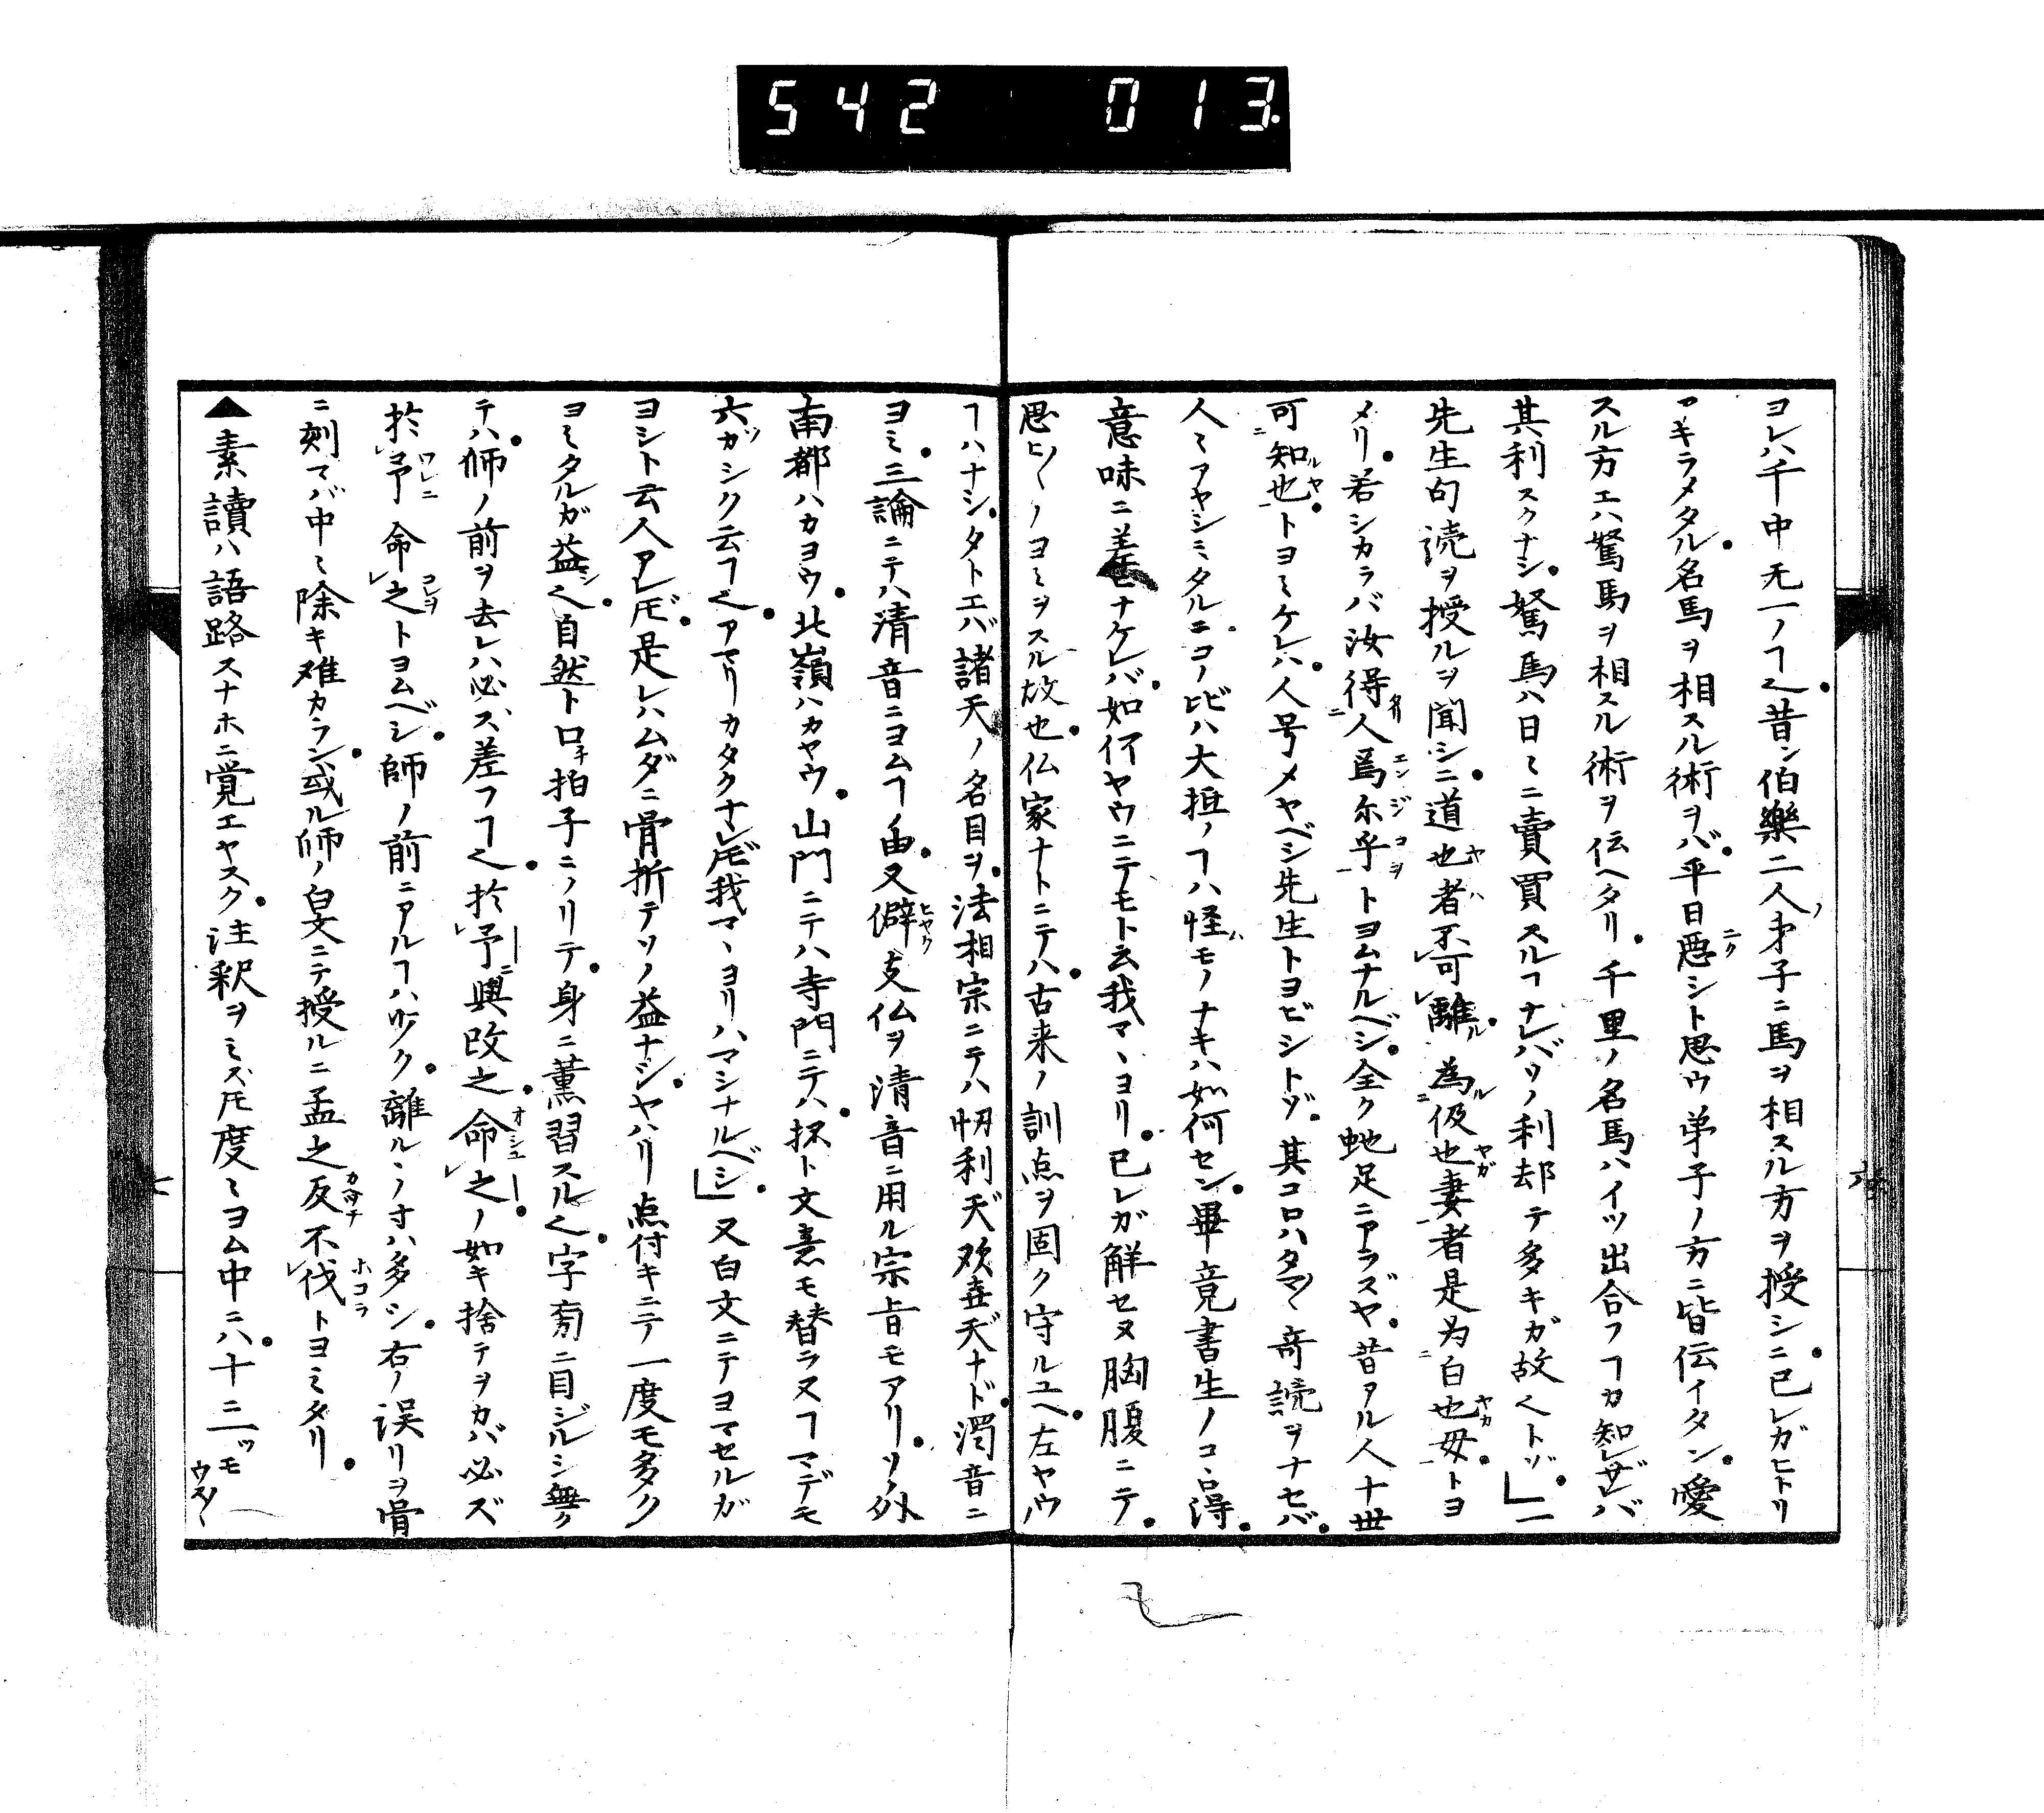 542 013.
ヨレハ千中无一ノヿ也昔シ伯樂二人ノ弟子ニ馬ヲ相スル方ヲ授シニ已レガヒトリ
アキラメタル名馬ヲ相スル術ヲバ平日悪シト思ウ弟子ノ方ニ皆伝イタシ愛
スル方エハ駑馬ヲ相スル術ヲ伝ヘタリ千里ノ名馬ハイツ出合フヿカ知レザレバ
其利スクナシ駑馬ハ日々ニ賣買スルヿナレバソノ利却テ多キガ故也トゾ」一
先生句読ヲ授ルヲ聞シニ道也者不可離為仮也妻者是为白也母トヨ
メリ若シカラバ汝得人焉尓乎トヨムナルベシ全ク虵足ニアラズヤ昔アル人十世
可知也トヨミケレハ人号メヤベシ先生トヨビシトゾ其コロハタマ〱奇読ヲナセバ
人々アヤシミタルニコノ比ハ大抵ノヿハ怪モノナキハ如何セン畢竟書生ノコヽロ得
意味ニ差モナケレバ如何ヤウニテモト云我マヽヨリ已レガ解セヌ胸腹ニテ
思ヒ〱ノヨミヲスル故也仏家ナトニテハ古来ノ訓点ヲ固ク守ルユヘ左ヤウノ
ヿハナシタトエバ諸天ノ名目ヲ法相宗ニテハ忉利天歓喜天ナド濁音ニ
ヨミ三論ニテハ清音ニヨムヿノ由又僻支仏ヲ清音ニ用ル宗旨モアリソノ外
南都ハカヨウ北嶺ハカヤウ山門ニテハ寺門ニテハ抔ト文意モ替ラヌヿマデモ
六ガシク云ヿ也アマリカタクナレ𪜈我マヽヨリハマシナルベシ」又白文ニテヨマセルガ
ヨシト云人アレ𪜈是レハムダニ骨折テソノ益ナシヤハリ点付キニテ一度モ多ク
ヨミタルガ益也自然ト口拍子ニノリテ身ニ薫習スル也字旁ニ目ジルシ無ク
テハ師ノ前ヲ去レハ必ズ差フヿ也於予與改之命之ノ如キ捨テヲカバ必ズ
於予命之トヨムベシ師ノ前ニアルヿハ少ク離ルヽノ寸ハ多シ右ノ誤リヲ骨
ニ刻マバ中々除キ难カラン或ル师ノ白文ニテ授ルニ孟之反不伐トヨミタリ
▲素讀ハ語路スナホニ覚エヤスク注釈ヲミズ𪜈度々ヨム中ニハ十ニ一ッモ